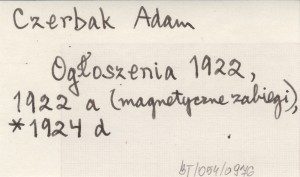 Czerbak Adam
Ogłoszenia 1922,
1922 a (magnetyczne zabiegi),
*1924 d
BT/004/0976